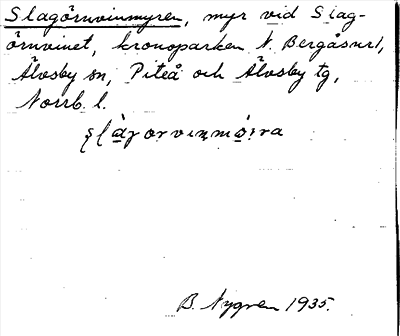 Slagörnvinmyren, myr vid Slag-
örnvinet, kronoparken N. Bergåsur1,
Älvsby sn, Piteå och Älvsby tg,
Norrb. l.
B. Nygren 1935.